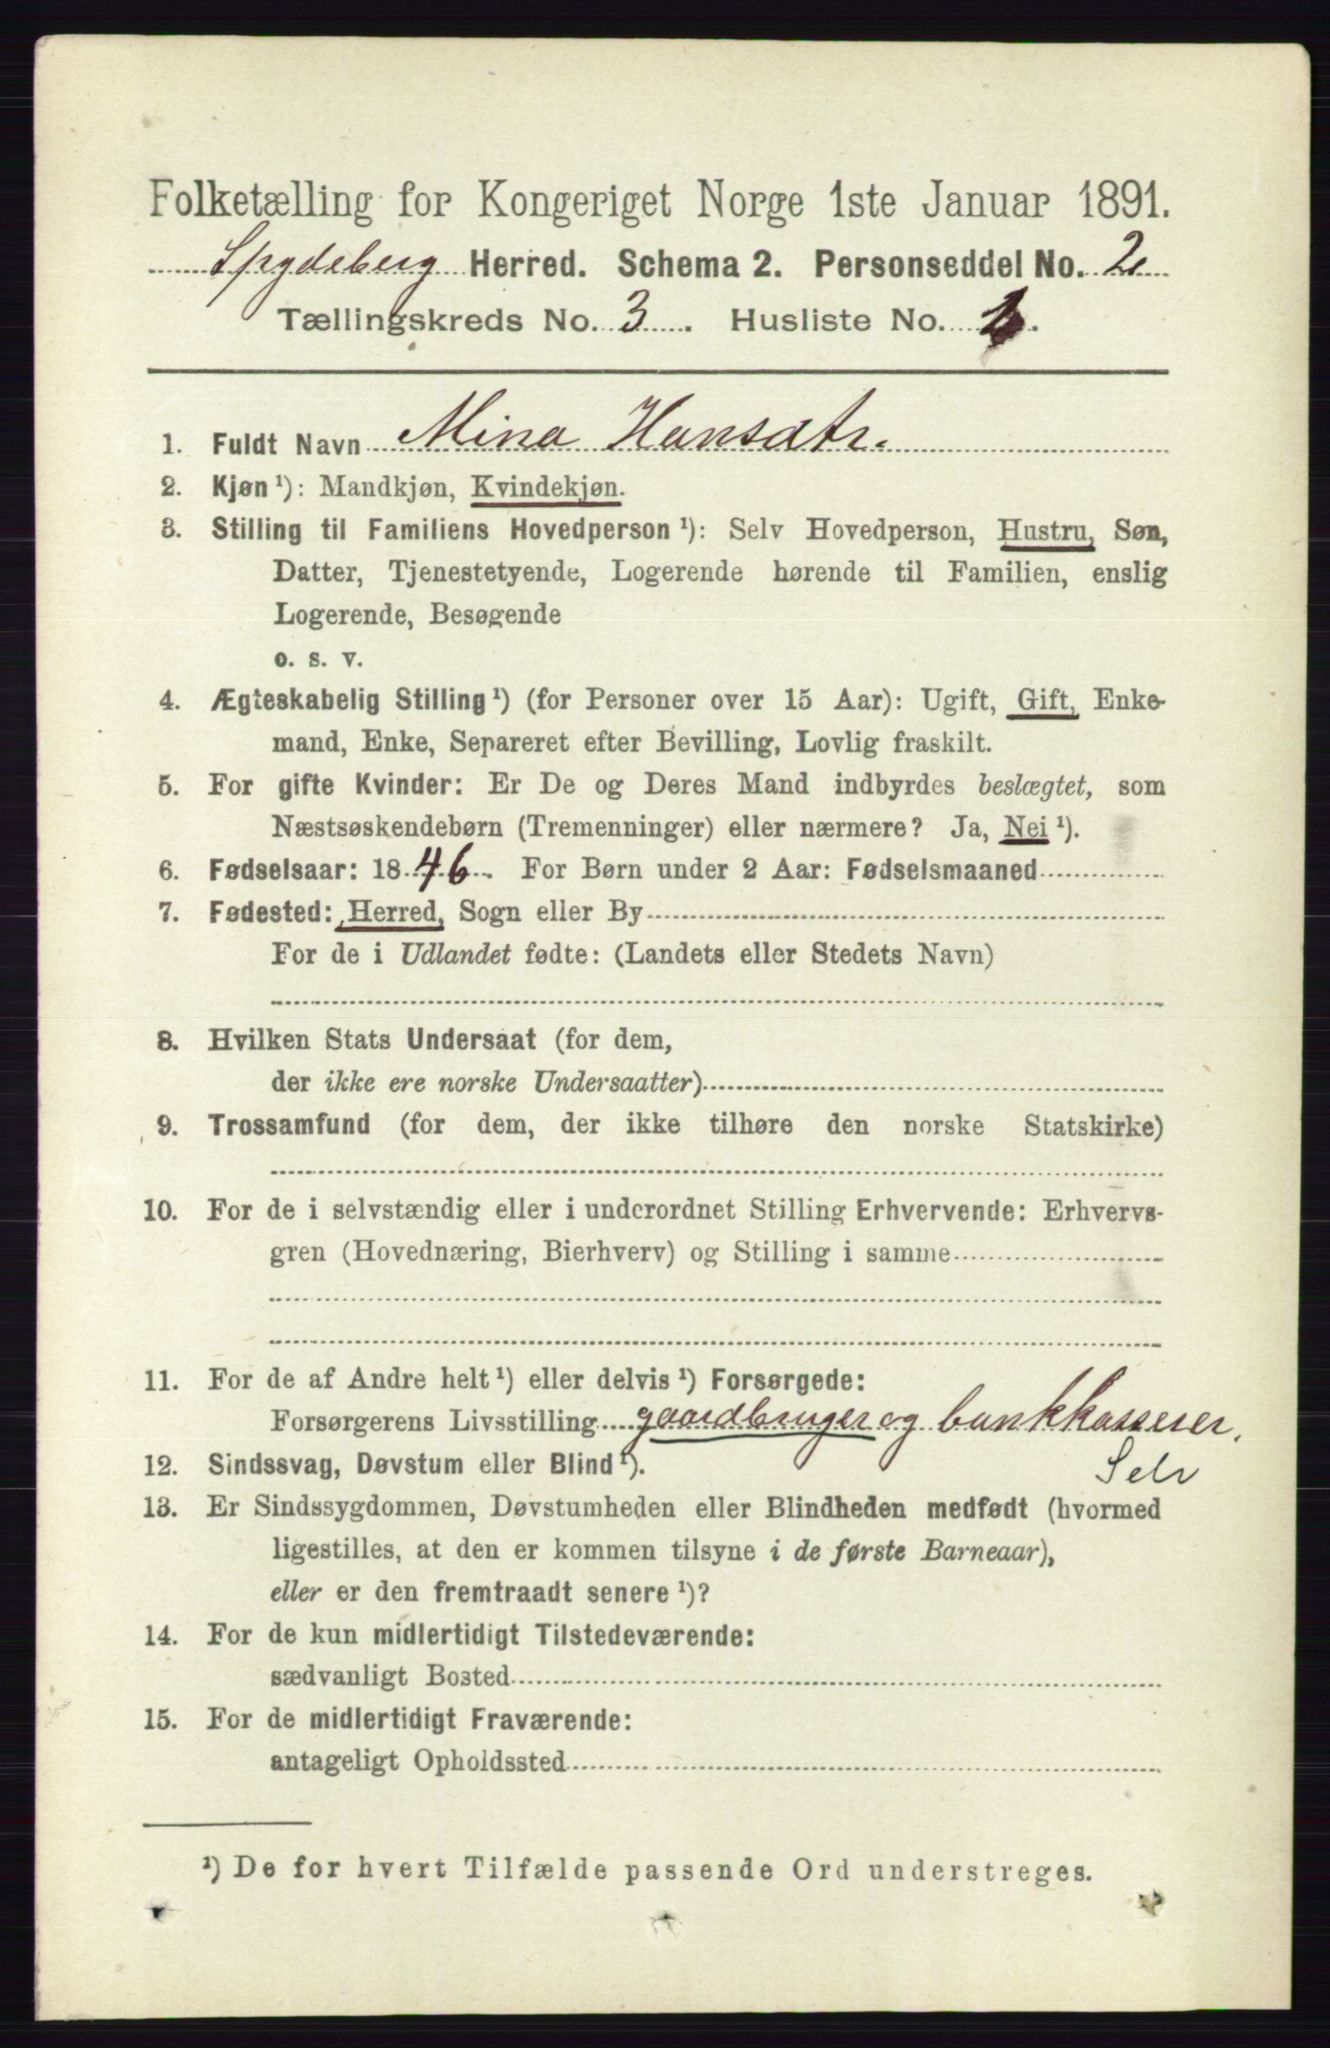 Folketælling for Kongeriget Norge 1ste Januar 1891.
Spydeberg Herred. Schema 2. Personseddel No. 2
Tællingskreds No. 3. Husliste No. .
1. Fuldt Navn Mina Hansdtr.
2. Kjøn ¹): Mandkjøn, Kvindekjøn.
3. Stilling til Familiens Hovedperson ¹): Selv Hovedperson, Hustru, Søn,
Datter, Tjenestetyende, Logerende hørende til Familien, enslig
Logerende, Besøgende
o. s. v.
4. Ægteskabelig Stilling ¹) (for Personer over 15 Aar): Ugift, Gift, Enke-
mand, Enke, Separeret efter Bevilling, Lovlig fraskilt.
5. For gifte Kvinder: Er De og Deres Mand indbyrdes beslægtet, som
Næstsøskendebørn (Tremenninger) eller nærmere? Ja, Nei ¹).
6. Fødselsaar: 1846. For Børn under 2 Aar: Fødselsmaaned
7. Fødested: Herred, Sogn eller By
For de i Udlandet fødte: (Landets eller Stedets Navn)
8. Hvilken Stats Undersaat (for dem,
der ikke ere norske Undersaatter)
9. Trossamfund (for dem, der ikke tilhøre den norske Statskirke)
10. For de i selvstændig eller i underordnet Stilling Erhvervende: Erhvervs-
gren (Hovednæring, Bierhverv) og Stilling i samme
11. For de af Andre helt ¹) eller delvis ¹) Forsørgede:
Forsørgerens Livsstilling gaardbruger og bankkasserer.
12. Sindssvag, Døvstum eller Blind ¹). Selv
13. Er Sindssygdommen, Døvstumheden eller Blindheden medfødt (hvormed
ligestilles, at den er kommen tilsyne i de første Barneaar),
eller er den fremtraadt senere ¹)?
14. For de kun midlertidigt Tilstedeværende:
sædvanligt Bosted
15. For de midlertidigt Fraværende:
antageligt Opholdssted
¹) De for hvert Tilfælde passende Ord understreges.